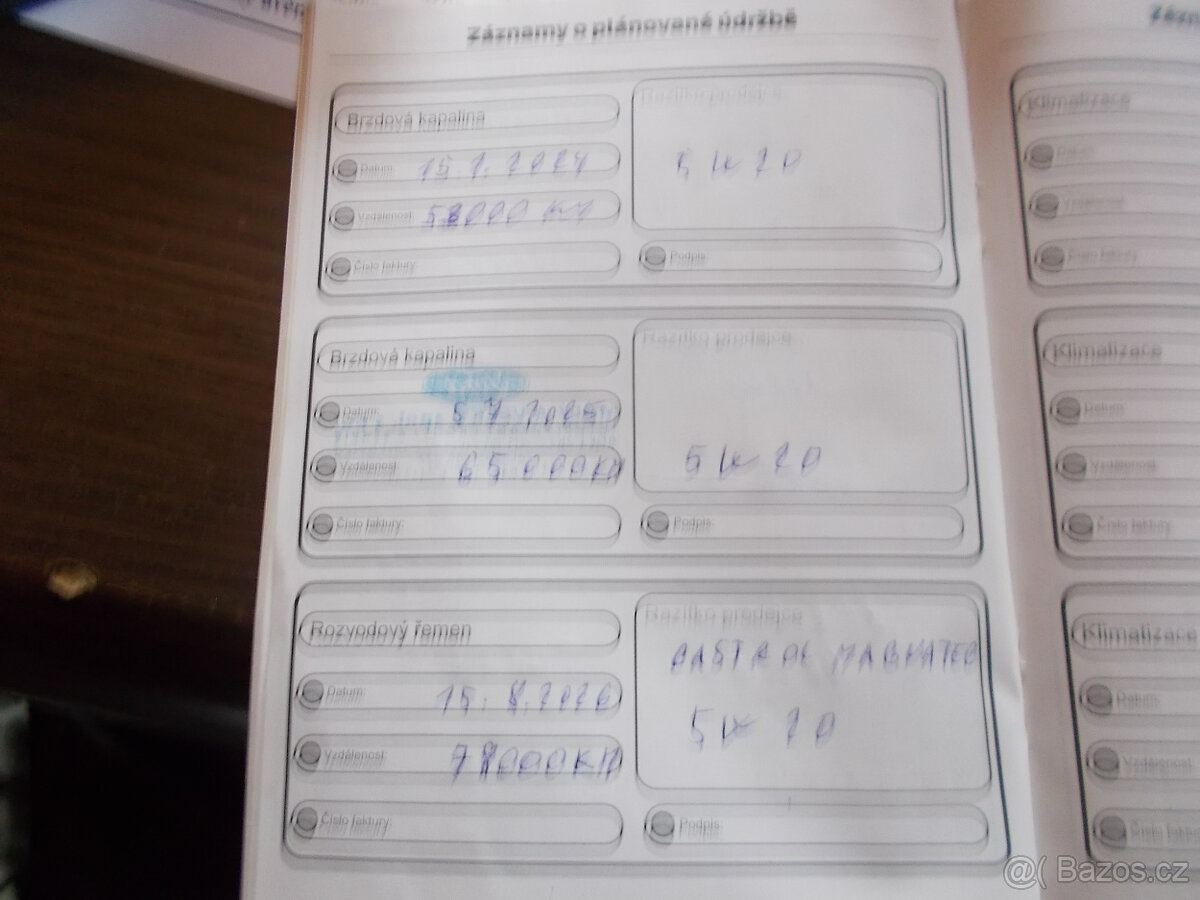 Záznamy o plánované údržbě
Brzdová kapalina
Razítko prodejce
Datum: 15.7.2024
5W20
Vzdálenost: 58000 KM
Číslo faktury:
Podpis:
Brzdová kapalina
Razítko prodejce
Datum: 5 7 2025
Vzdálenost: 65 000KM
5W20
Číslo faktury:
Podpis:
Rozvodový řemen
Razítko prodejce
CASTROL MAGNATEC
Datum: 15. 2026
5W 20
Vzdálenost: 000KM
Číslo faktury:
Podpis:
Klimatizace
Datum:
Vzdálenost:
Číslo faktury
Klimatizace
Datum:
Vzdálenost:
Číslo faktury:
Klimatizace
Datum:
Vzdálenost:
Číslo
@( Bazos.cz